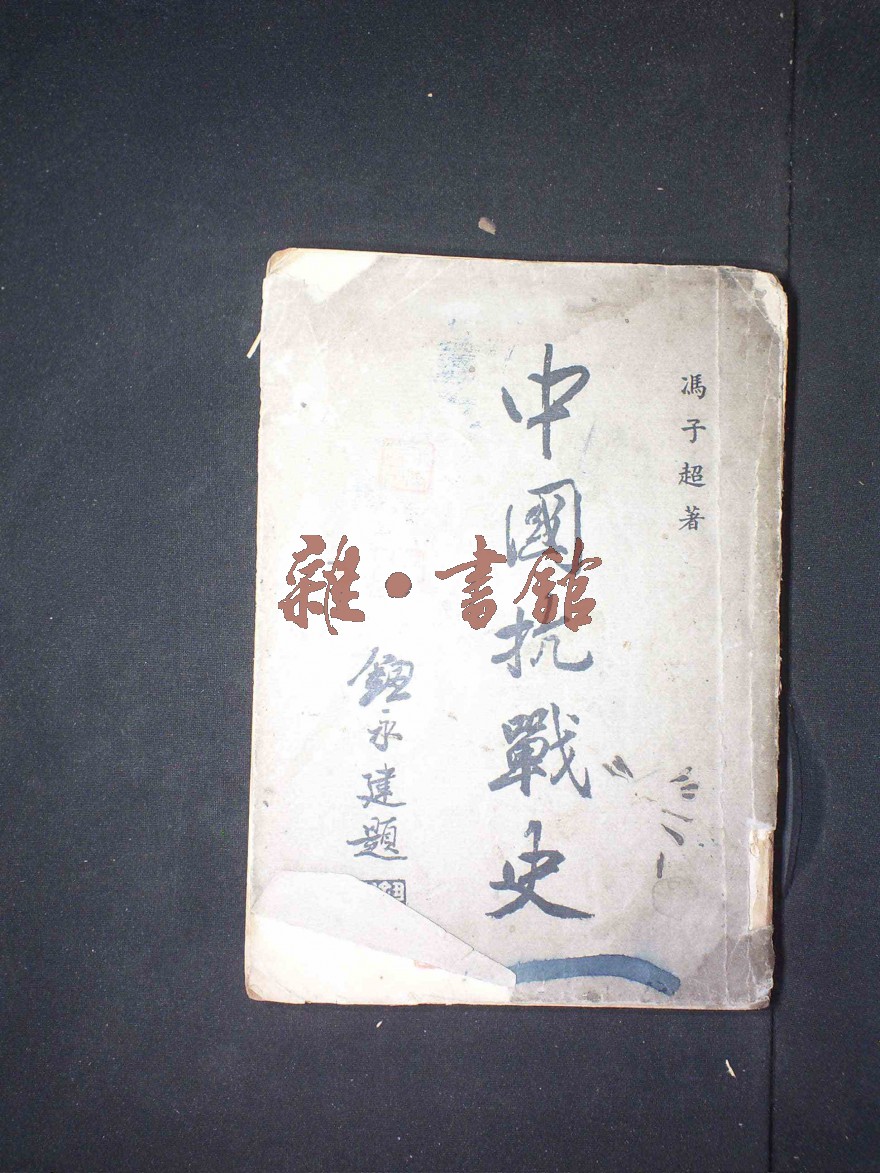 馮子超著
中國抗戰史
鈕永建題
雜·書館